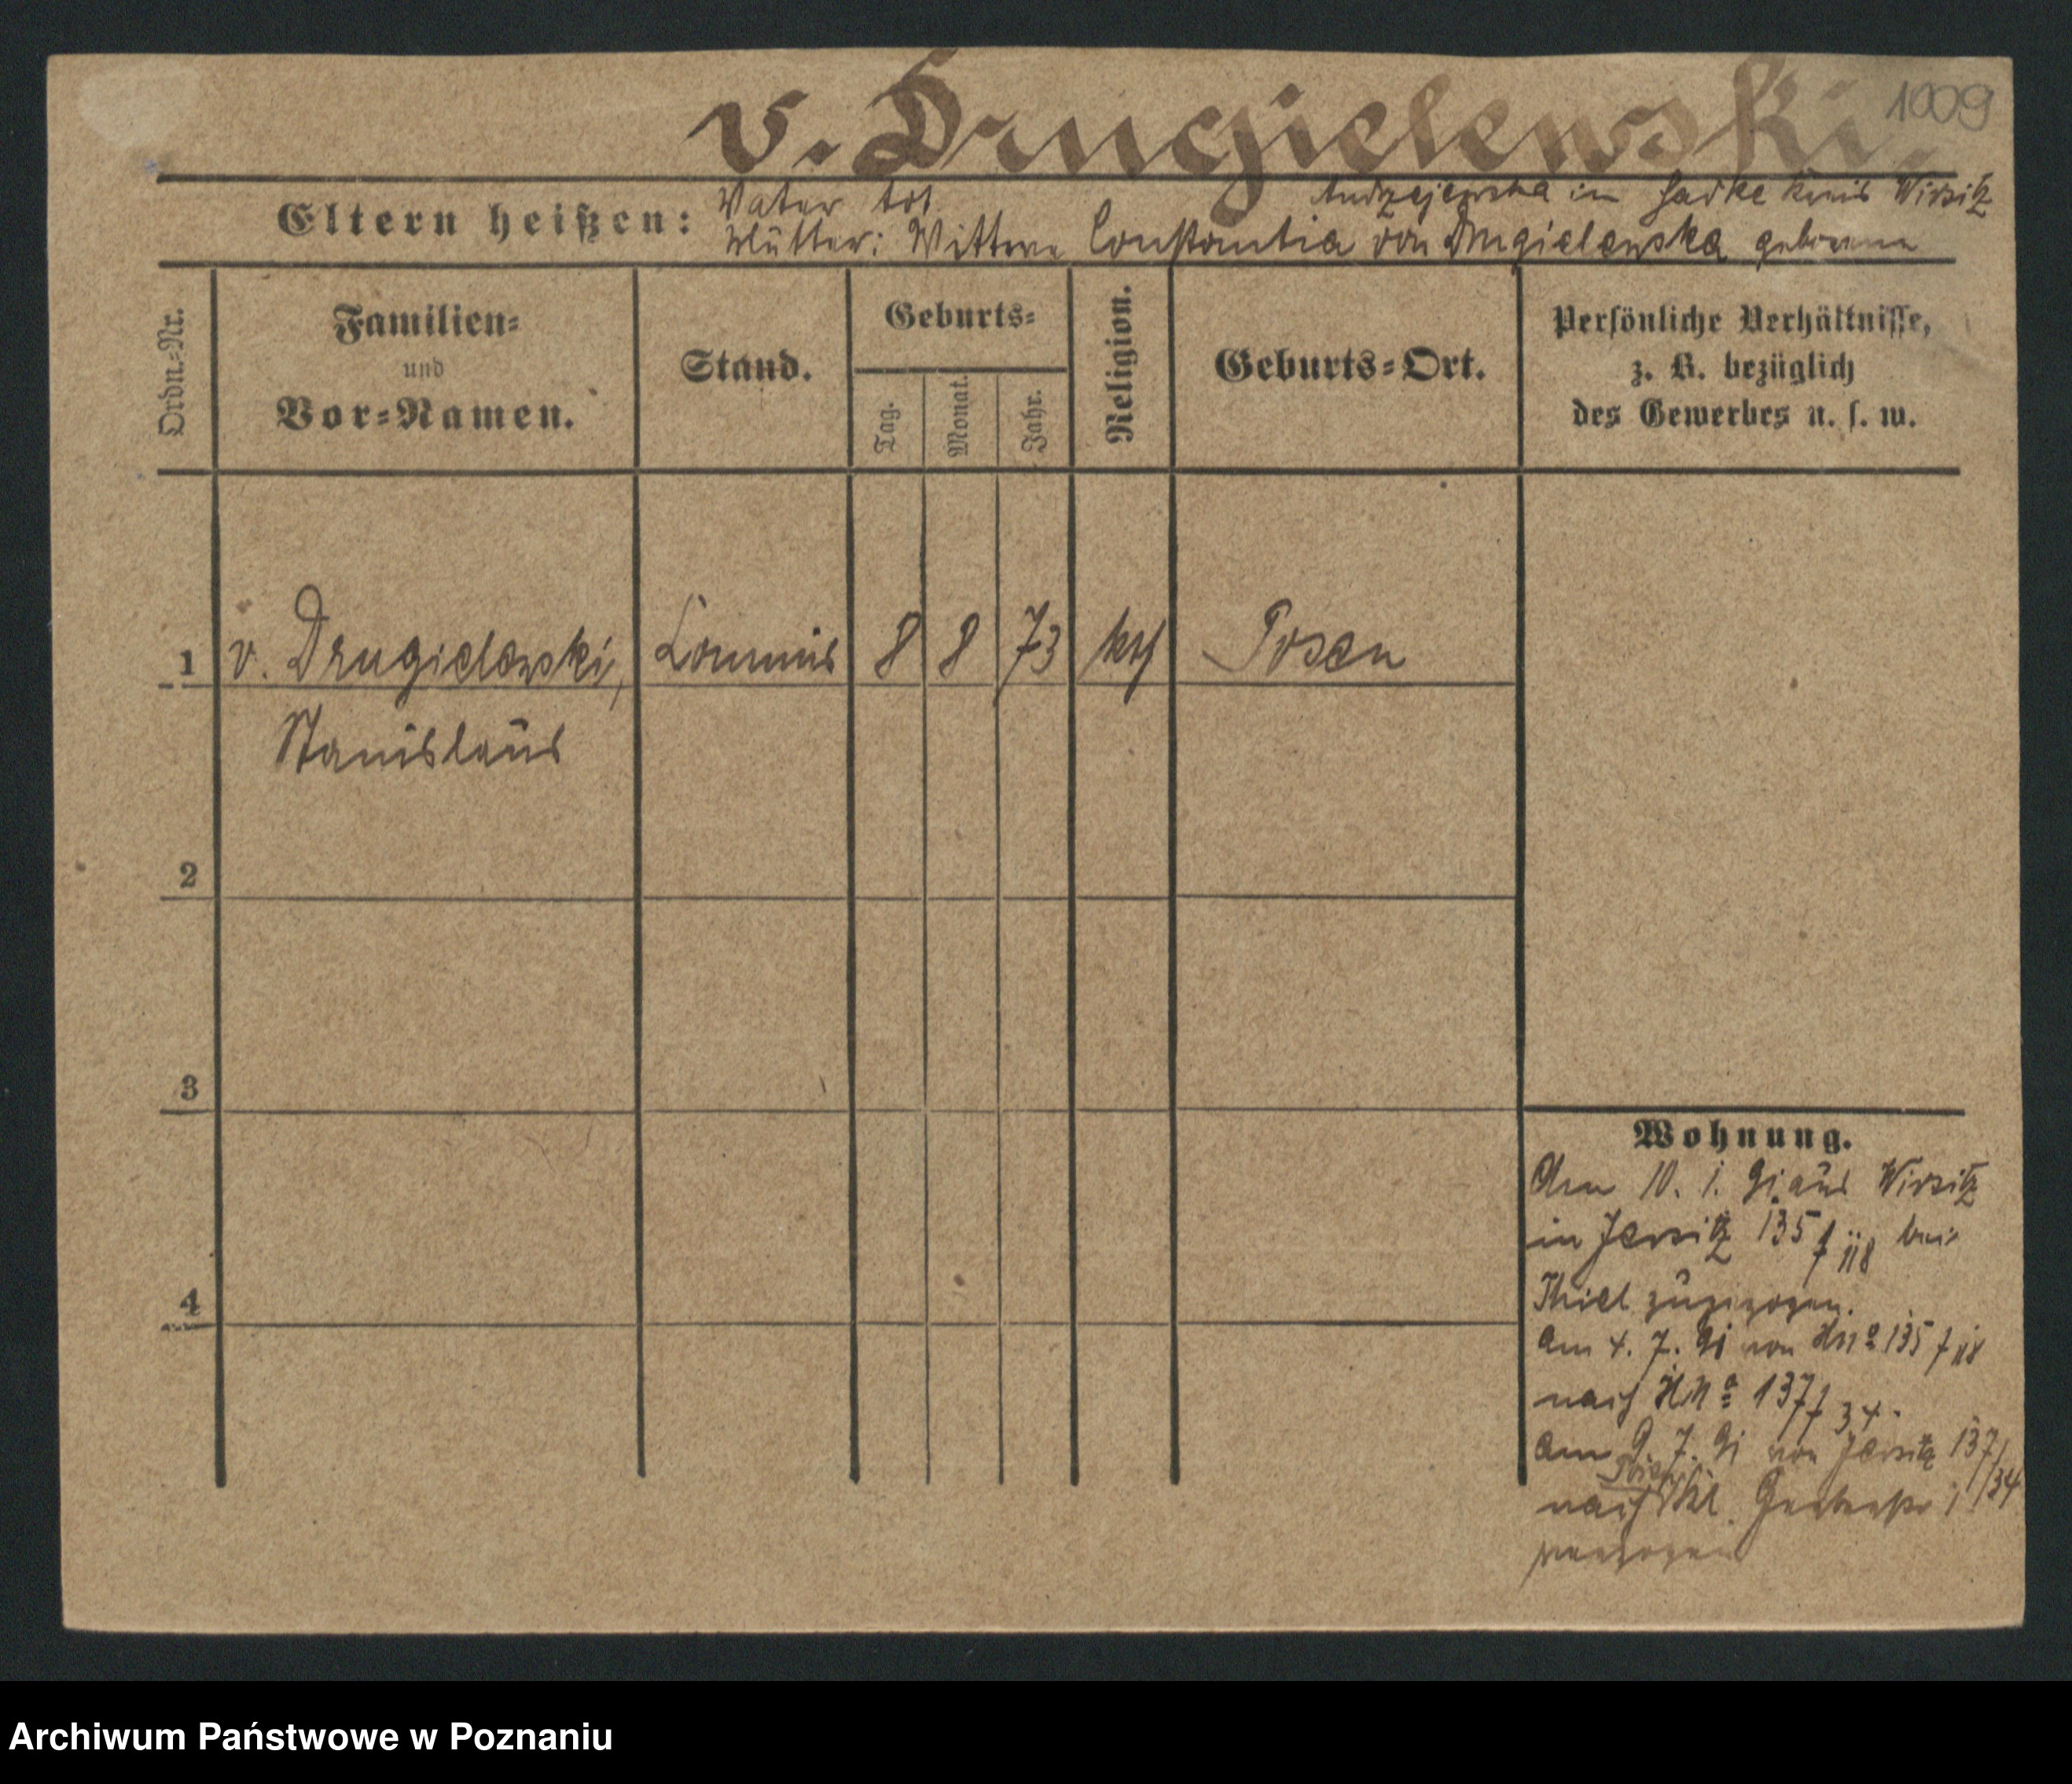 v. Drugielewski.
1009
Eltern heißen:
Vater tot.
Andrzejewska in Sadke Kreis Wirsitz
Mutter: Wittwe Constantia von Drugielewska geborene
Ordn.-Nr.
Familien-
und
Vor-Namen.
Stand.
Geburts-
Tag.
Monat.
Jahr.
Religion.
Geburts-Ort.
Persönliche Verhältnisse,
z. B. bezüglich
des Gewerbes u. s. w.
1 v. Drugielewski, Commis 8 8 73 kth Posen
Stanislaus
2
3
4
Wohnung.
Am 10. 1. 91 aus Wirsitz
in Jersitz 135 f 118 bei
Thiel zugezogen.
Am 4. 7. 91 von HNo 135 f 118
nach HNo 137 f 34.
Am 9. 7. 91 von Jersitz 137/34
nach Posen Kl. Gerberstr 1
verzogen
Archiwum Państwowe w Poznaniu